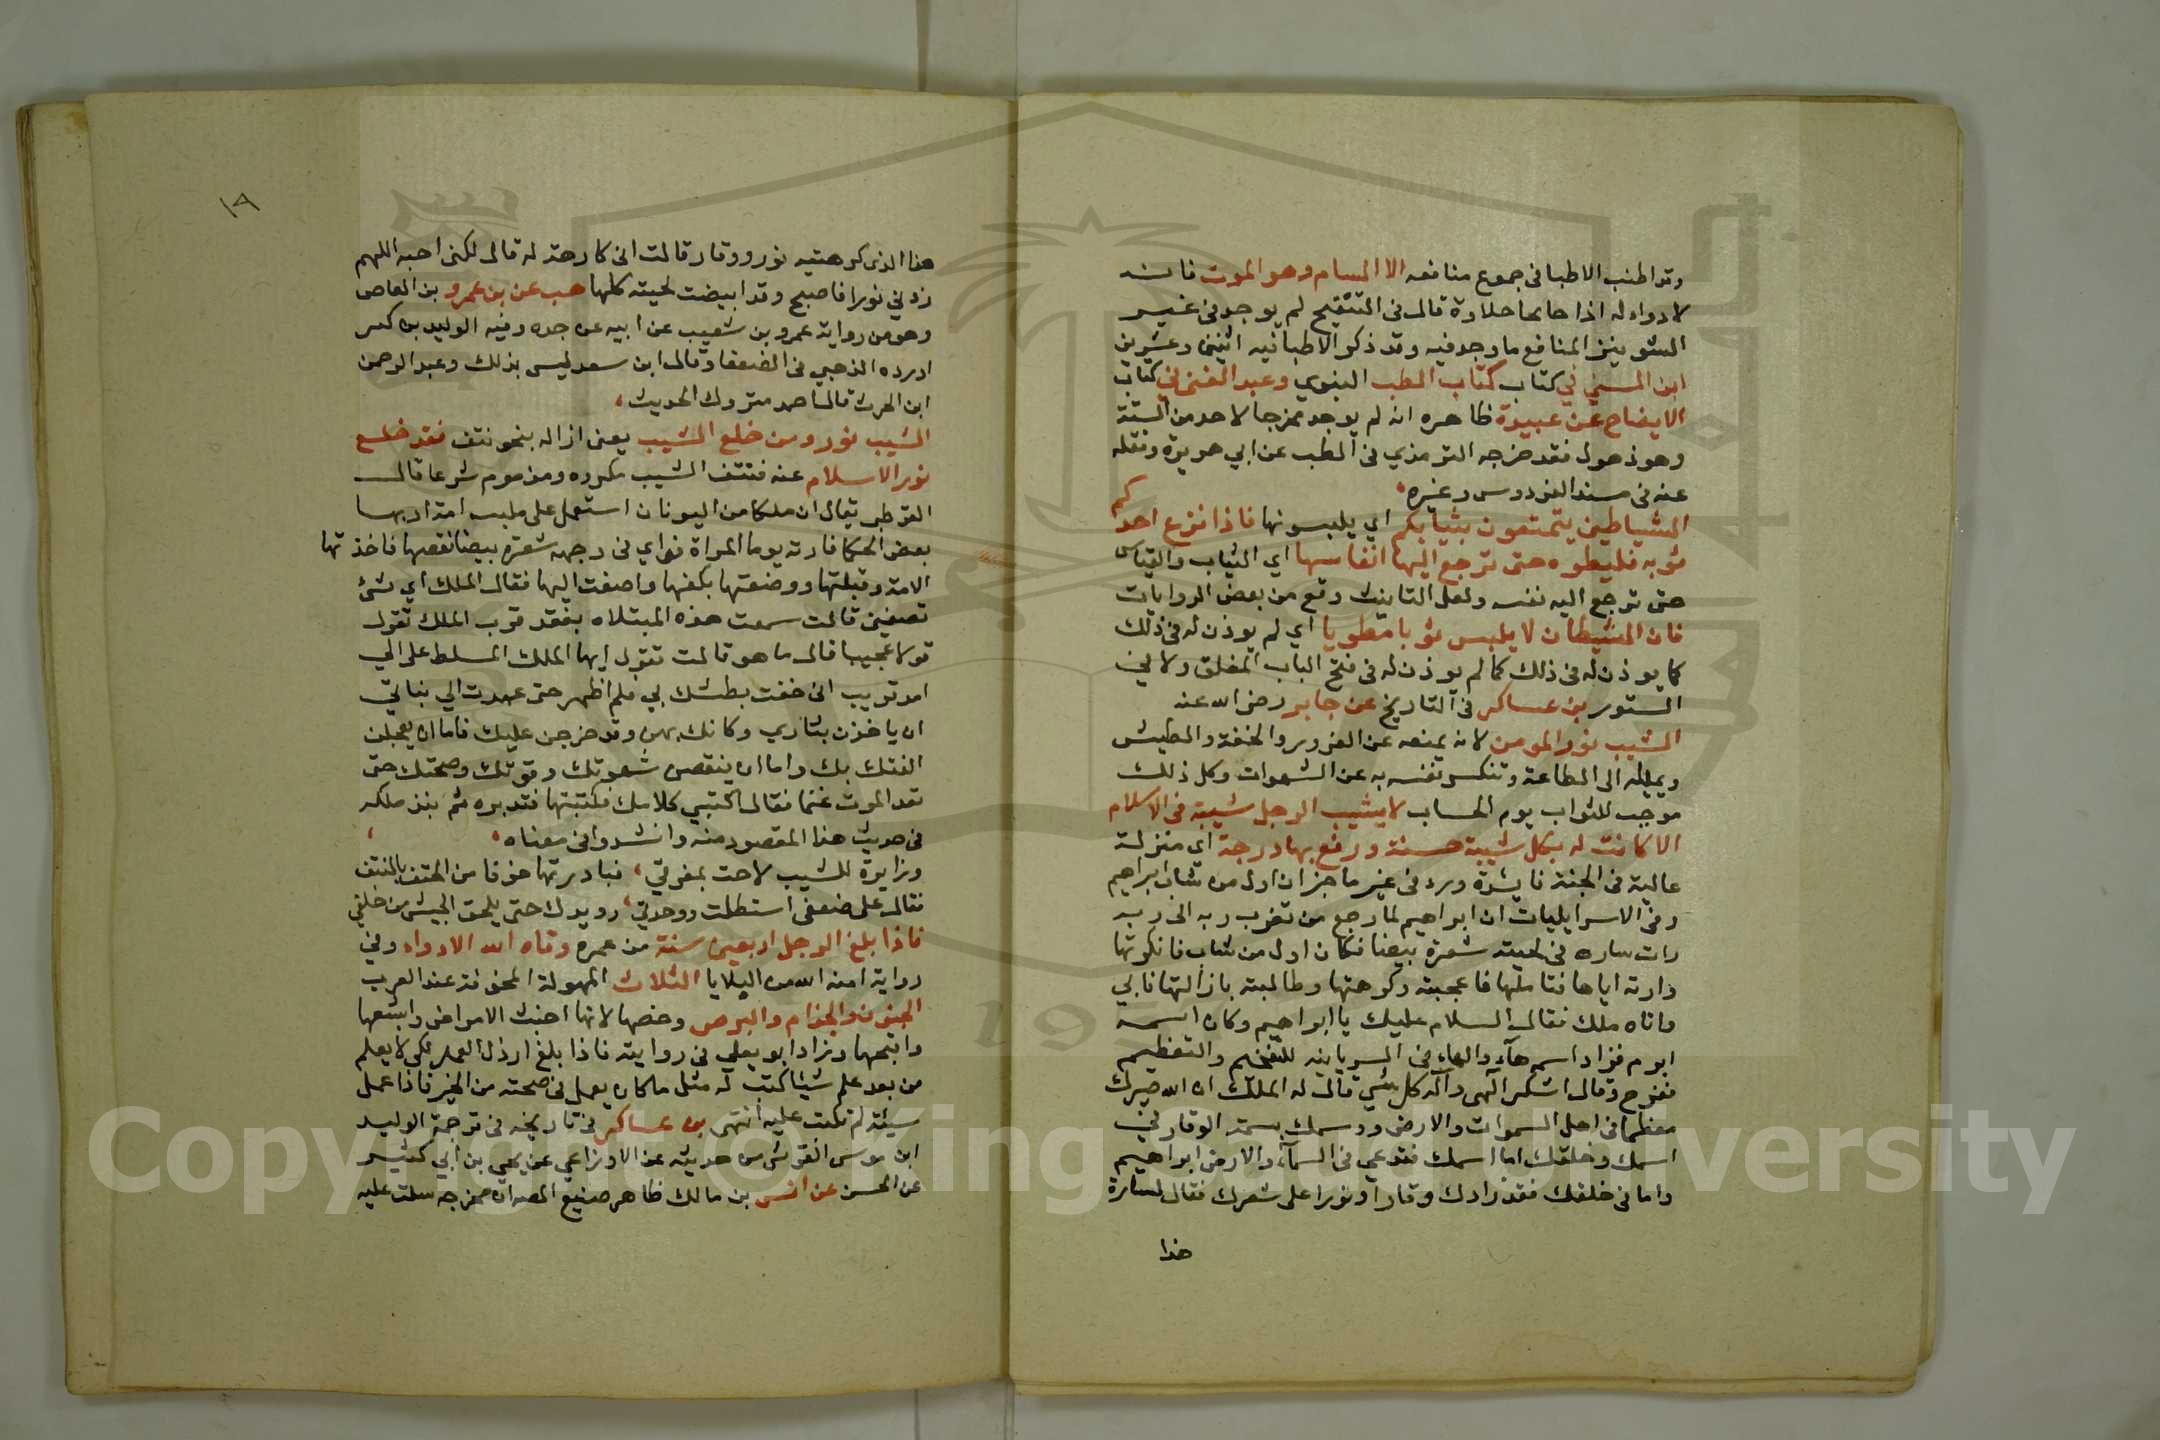 وقد اطنب الاطبا فى جموع منافعه الا السام وهو الموت فانه
لا دواء له اذا جا قال فى التنقيح لم يوجد فى غير
الشونيز المنافع ما وجد فيه وقد ذكر الاطبا فيه اثنين وعشرين
ابن السني في كتاب كتاب الطب النبوي وعبد الغنى في كتاب
الايضاح عن عبيدة ظاهره انه لم يوجد مخرجا لاحد من الستة
وهو ذهول فقد خرجه الترمذي فى الطب عن ابي هريرة ونقله
عنه فى مسند الفردوس وغيره
الشياطين يتمتعون بثيابكم اي يلبسونها فاذا نزع احدكم
ثوبه فليطوه حتى ترجع اليها انفاسها اي الثياب والقياس
حتى ترجع اليه نفسه ولعل التانيث وقع من بعض الروايات
فان الشيطان لا يلبس ثوبا مطويا اي لم يوذن له فى ذلك
كما يوذن له فى ذلك كما لم يوذن له فى فتح الباب المغلق ولا في
الستور بن عساكر فى التاريخ عن جابر رضى الله عنه
الشيب نور المومن لانه يمنعه عن الغرور والخفة والطيش
ويميله الى الطاعة وتنكسر نفسه به عن الشهوات وكل ذلك
موجب للثواب يوم الحساب لا يشيب الرجل شيبة فى الاسلام
الا كانت له بكل شيبة حسنة ورفع بها درجة اى منزلة
عالية فى الجنة فايدة ورد فى غير ما خبر ان اول من شاب ابراهيم
وفى الاسرايليات ان ابراهيم لما رجع من تقرب ربه الى ربه
رات ساره فى لحيته شعرة بيضا فكان اول من شاب فانكرتها
وارته اياها فتاملها فاعجبته وكرهتها وطالبته بازالتها فابي
واتاه ملك فقال السلام عليك يا ابراهيم وكان اسمه
ابرم فزاد اسمه هآء والهاء فى السريانيه للتفخيم والتعظيم
ففرح وقال اشكر الهى واله كل شي قال له الملك ان الله صيرك
معظما فى اهل السموات والارض ووسمك بسمة الوقار في
اسمك وخلقك اما اسمك فتدعي فى السماء والارض ابراهيم
واما فى خلقك فقد زادك وقارا ونورا على شعرك فقال لسارة
هذا
١٨
هذا الذى كرهتيه نور ووقار قالت انى كارهة له قال لكنى احبه اللهم
زدني نورا فاصبح وقد ابيضت لحيته كلها هب عن بن عمرو بن العاص
وهو من رواية عمرو بن شعيب عن ابيه عن جده وفيه الوليد بن كثير
اورده الذهبي فى الضعفا وقال ابن سعد ليس بذلك وعبد الرحمن
ابن الحرث قال احمد متروك الحديث
الشيب نور ومن خلع الشيب يعنى ازاله بنحو نتف فقد خلع
نور الاسلام عنه فنتف الشيب مكروه ومذموم شرعا قال
القرطبي يقال ان ملكا من اليونان استعمل على ملبسه امة ادبها
بعض الحكما فارته يوما المراة فراي فى وجهه شعرة بيضا فقصها فاخذتها
الامة وقبلتها ووضعتها بكفها واصغت اليها فقال الملك اي شئ
تصغين قالت سمعت هذه المبتلاه بفقد قرب الملك تقول
قولا عجيبا قال ما هو قالت تقول ايها الملك المسلط على الي
امد قريب انى خفت بطشك بي فلم اظهر حتى عهدت الي بناتي
ان ياخذن بثاري وكانك بهن وقد خرجن عليك فاما ان يعجلن
الفتك بك واما ان ينقصن شهوتك وقوتك وصحتك حتى
تعد الموت غنما فقال اكتبي كلامك فكتبتها فتدبره ثم نبذ ملكه
فى حديث هذا المقصود منه وانشدوا فى معناه
وزايرة للشيب لاحت بمفرقي فبادرتها خوفا من الحتف بالنتف
فقالت على ضعفى استطلت ووحدتي رويدك حتى يلحق الجيش من خلفي
فاذا بلغ الرجل اربعين سنة من عمره وقاه الله الادواء وفي
رواية امنه الله من البلايا الثلاث المهولة المخوفة عند العرب
الجنون والجذام والبرص وخصها لانها اخبث الامراض وابشعها
واقبحها وزاد ابو يعلي فى روايته فاذا بلغ ارذل العمر لكى لا يعلم
من بعد علم شيئا كتب له مثل ما كان يعمل فى صحته من الخير فاذا عمل
سيئة لم تكتب عليه انتهى بن عساكر فى تاريخه فى ترجمة الوليد
ابن موسى القرشى من حديثه عن الاوزاعي عن يحي بن ابي كثير
عن الحسن عن انس بن مالك ظاهر صنيع المص ان مخرجه سكت عليه
Copyright © King Saud University